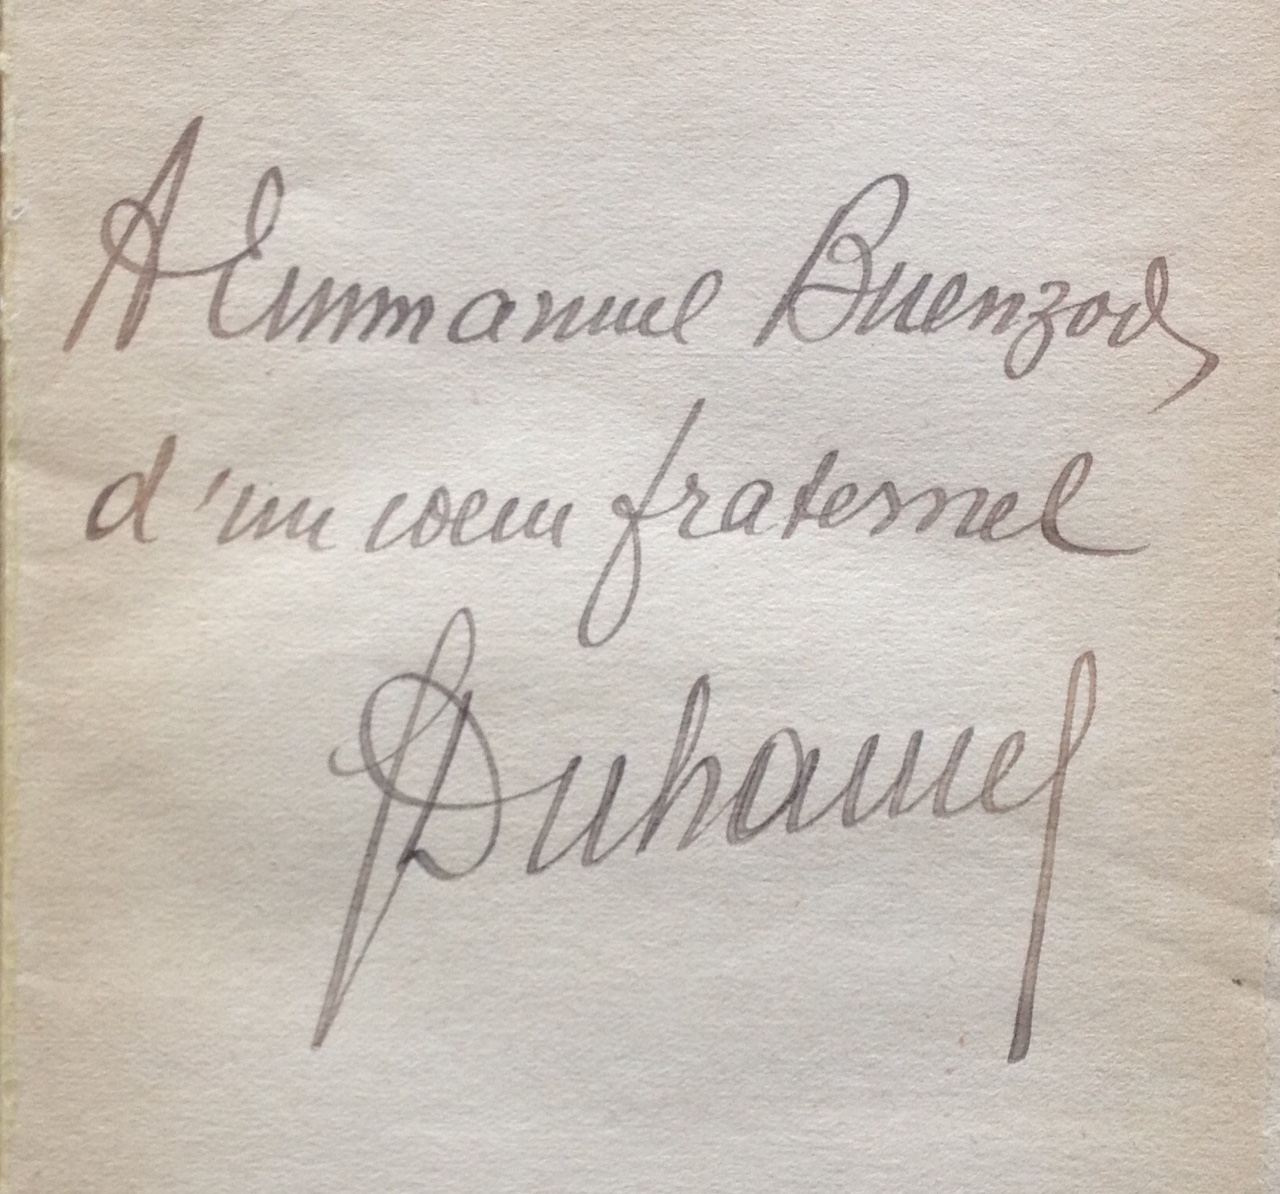 A Emmanuel Buenzod,
d'un coeur fraternel
Duhamel